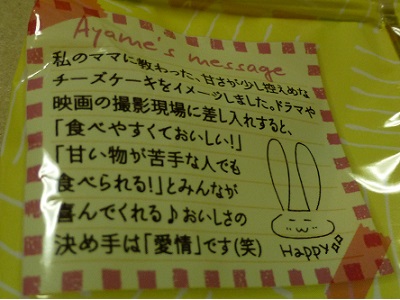 Ayame's message
私のママに教わった、甘さが少し控えめな
チーズケーキをイメージしました。ドラマや
映画の撮影現場に差し入れすると、
「食べやすくておいしい!」
「甘い物が苦手な人でも
食べられる!」とみんなが
喜んでくれる♪おいしさの
決め手は「愛情」です(笑)
Happy♫